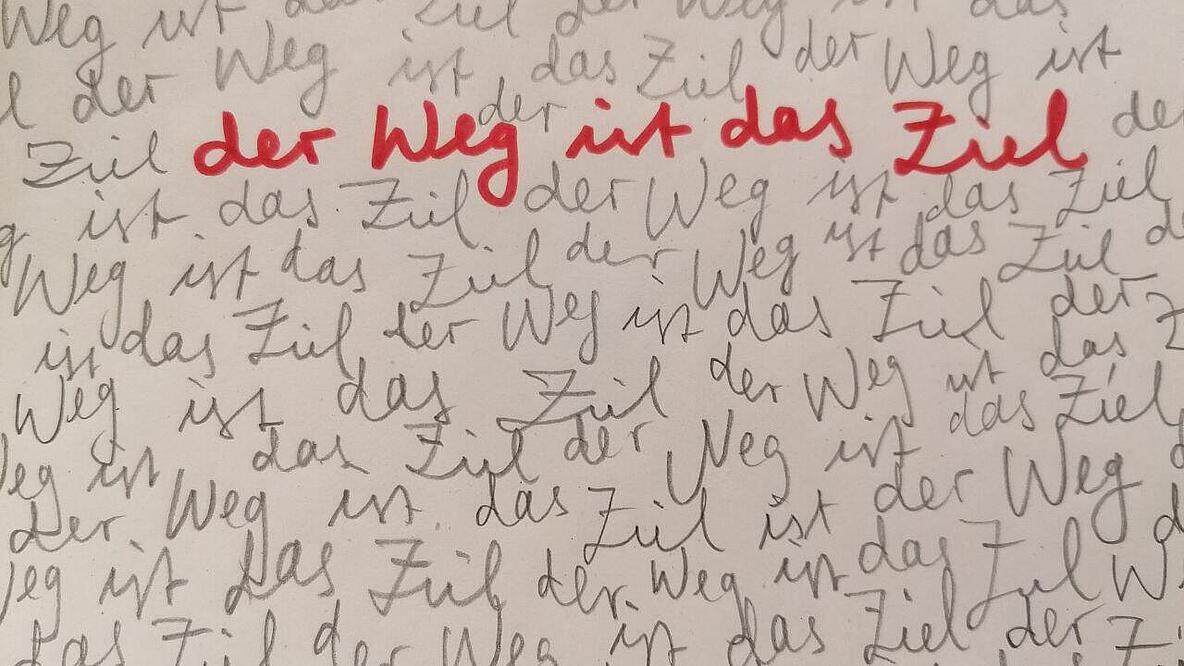 Weg ist das Ziel der Weg ist das
l der Weg ist das Ziel der Weg ist
Ziel der Weg der ist das Ziel de
g ist das Ziel der Weg ist das Ziel
Weg ist das Ziel der Weg ist das Ziel de
ist das Ziel der Weg ist das Ziel der
Weg ist das Ziel der Weg ist das Z
Weg ist das Ziel der Weg ist das Ziel
Der Weg ist das Ziel ist der Weg d
Weg ist das Ziel der Weg ist das Ziel We
das Ziel der Weg ist das Ziel der Zi